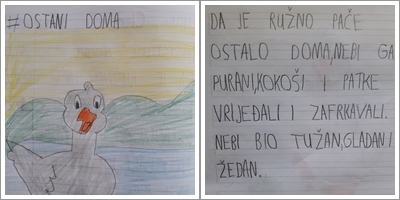 #OSTANI DOMA
DA JE RUŽNO PAČE
OSTALO DOMA,NEBI GA
PURANI,KOKOŠI I PATKE
VRIJEĐALI I ZAFRKAVALI.
NEBI BIO TUŽAN,GLADAN I
ŽEDAN.